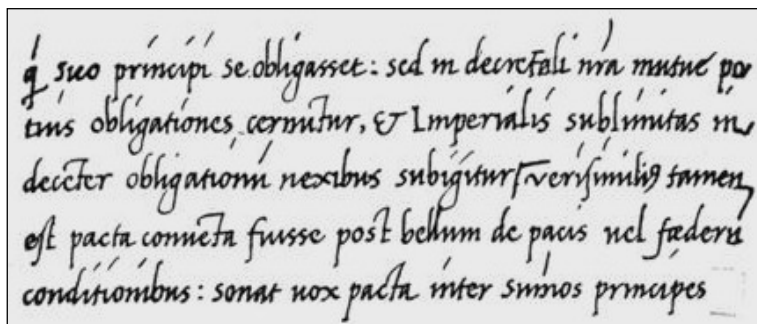 q̇ suo principi se obligasset: sed in decretali nr̄a mutuę po
tius obligationes cernūtur, & Imperialis sublimitas in,
decēter obligationū nexibus subigitur verisimiliꝰ tamen
est pacta conuēta fuisse post bellum de pacis uel fœderū
conditionibus: sonat uox pacta inter sum̄os principes